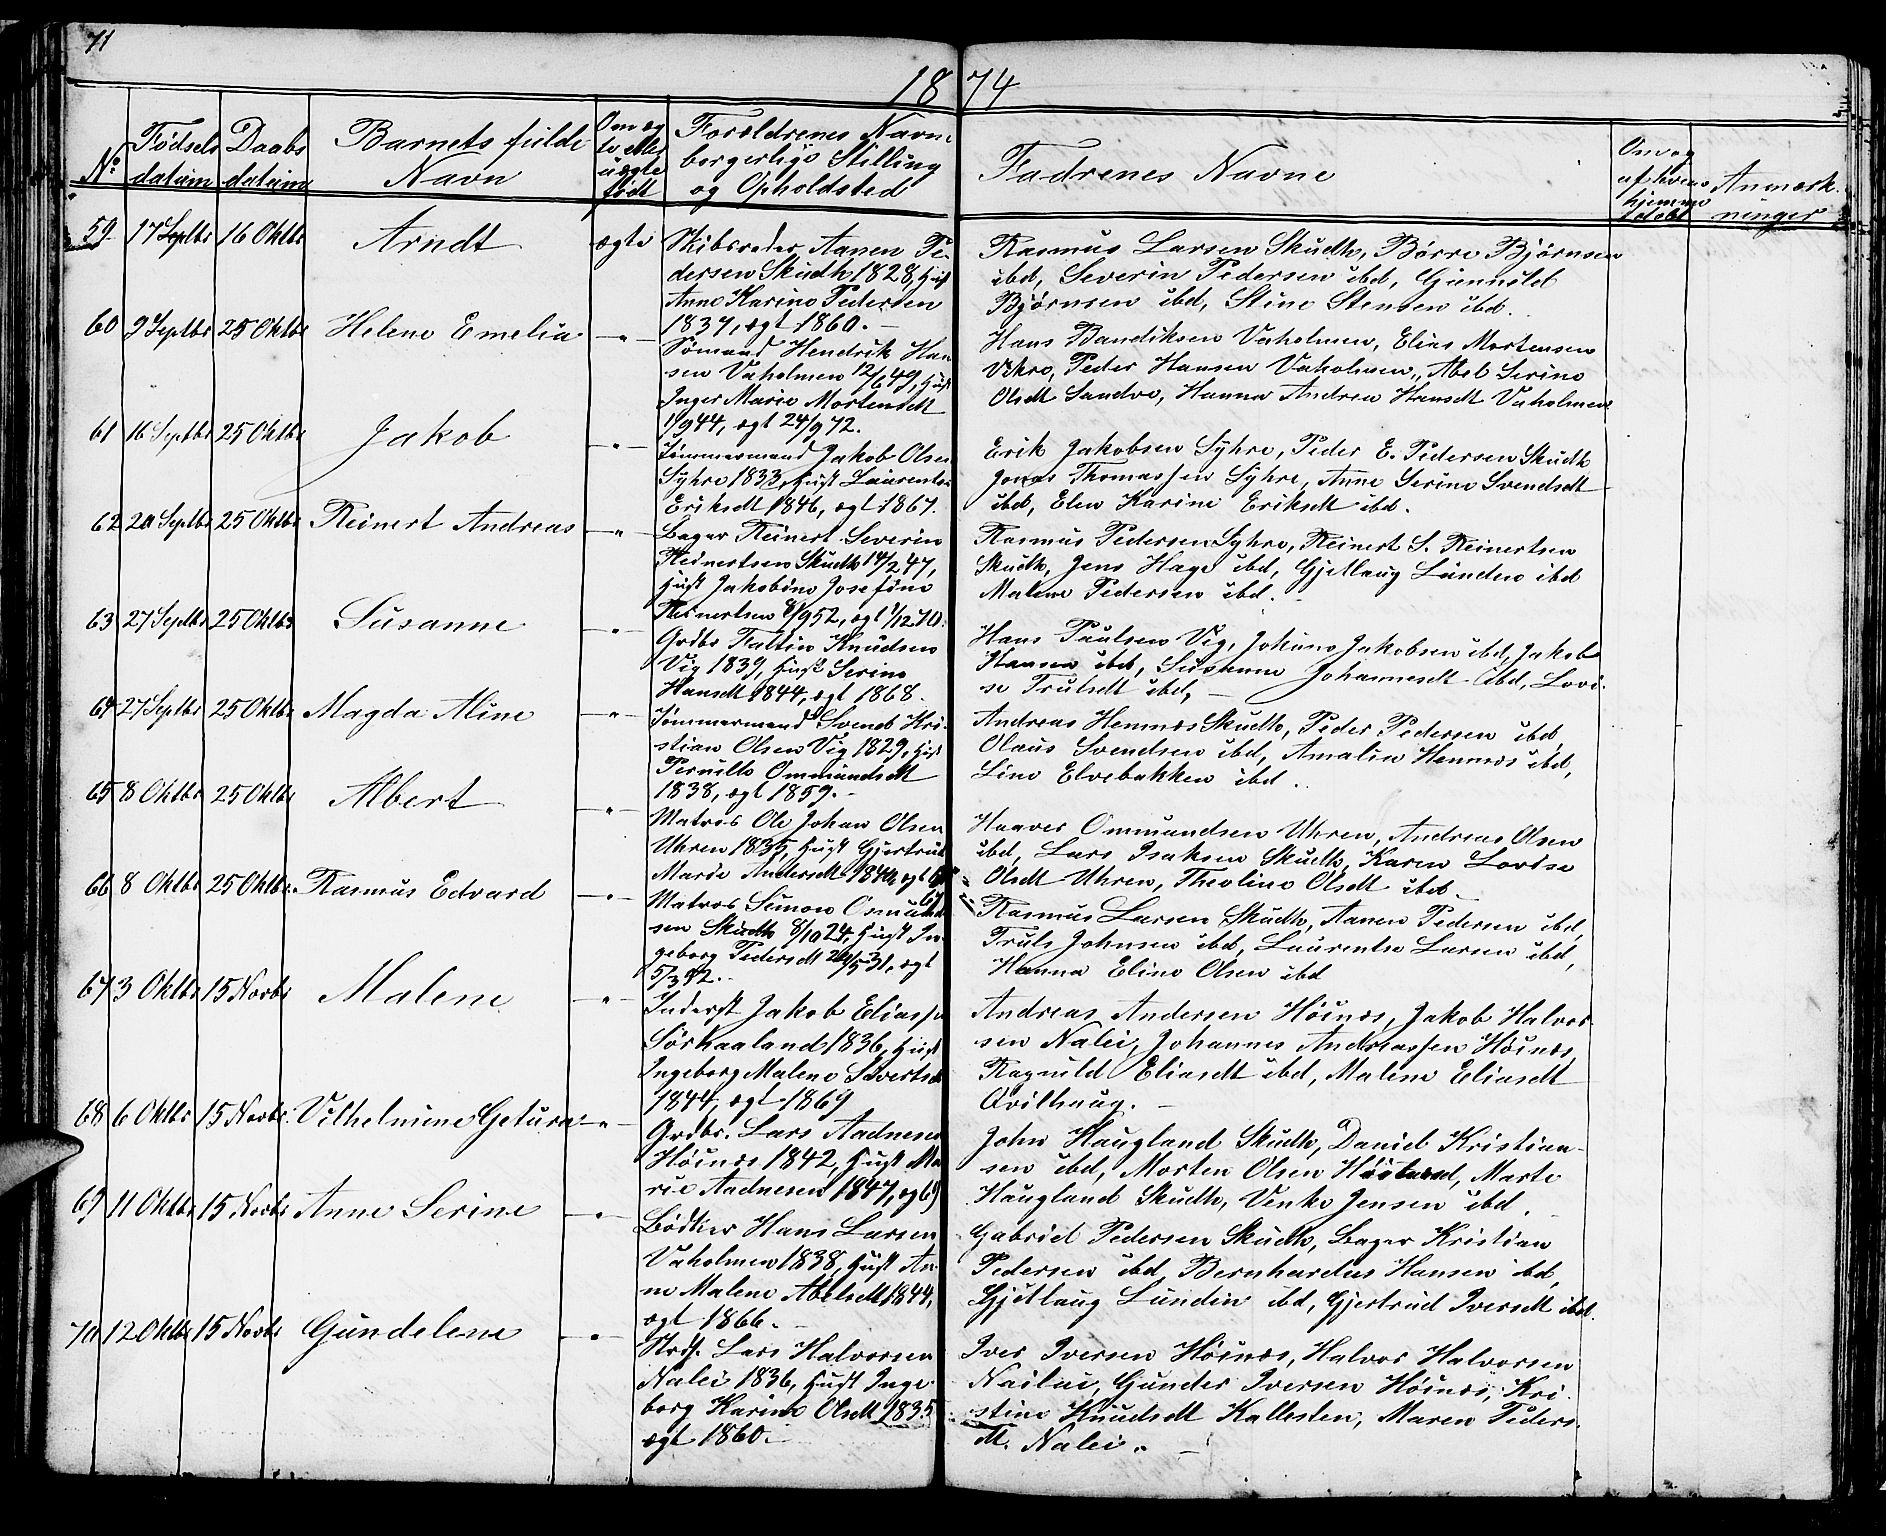 71
18 74
No. Fødsels datum Daabs datum Barnets fulde Navn Om æg te eller uægte født Forældrenes Navn borgerlige Stilling og Opholdsted Fadrenes Navne Om og af hvem hjemme døbt Anmærk- ninger
59 17 Septbr 16 Oktbr Arndt ægte
Skibsreder Aanen Pe-
dersen Skudh 1828, Hust
Anne Karine Pedersen
1837, ægt 1860.
Rasmus Larsen Skudh, Børre Bjørnsen
ibd, Severin Pedersen ibd, Gunnild
Bjørnsen ibd, Stine Stensen ibd.
60 9 Septbr 25 Oktbr Helene Emelia - " -
Sømand Hendrik Han
sen Vaholmen 12/6 49, Hust
Inger Marie Mortensdt
1/9 44, ægt 24/9 72.
Hans Bandiksen Vaholmen, Elias Mortensen
Vikre, Peder Hansen Vaholmen, Abel Serine
Olsdt Sandve, Hanna Andrea Hansdt Vaholmen
61 16 Septbr 25 Oktbr Jakob - " -
Tømmermand Jakob Olsen
Syhre 1833, Hust Laurentse
Eriksdt 1846, ægt 1867.
Erik Jakobsen Syhre, Peder E. Pedersen Skudh
Jonas Thomassen Syhre, Anne Serine Svendsdt
ibd, Elen Karine Eriksdt ibd.
62 20 Septbr 25 Oktbr Reinert Andreas - " -
Bager Reinert Severin
Reinertsen Skudh 14/2 47,
Hust Jakobine Josefine
Reinertsen 8/9 52, ægt 1/12 70.
Rasmus Pedersen Syhre, Reinert S. Reinertsen
Skudh, Jens Hage ibd, Gjetlaug Lunden ibd
Malene Pedersen ibd.
63 27 Septbr 25 Oktbr Susanne - " -
Grdbr Faltin Knudsen
Vig 1839, Hust Serine
Hansdt 1844, ægt 1868.
Hans Paulsen Vig, Johans Jakobsen ibd, Jakob
Hansen ibd, Susanne Johannesdt ibd, Lovi-
se Trulsdt ibd,
64 27 Septbr 25 Oktbr Magda Aline - " -
Tømmermand Svend Kri-
stian Olsen Vig 1829, Hust
Pernille Ommundsdt
1838, ægt 1859.
Andreas Hemnes Skudh, Peder Pedersen ibd,
Olaus Svendsen ibd, Amalia Hemnes ibd,
Line Elvebakken ibd.
65 8 Oktbr 25 Oktbr Albert - " -
Matros Ole Johan Olsen
Uhren 1835, Hust Gjertrud
Marie Andersdt 1840, ægt
Haaver Ommundsen Uhren, Andreas Olsen
ibd, Lars Isaksen Skudh, Karen Lovise
Olsdt Uhren, Theoline Olsdt ibd.
66 8 Oktbr 25 Oktbr. Rasmus Edvard - " -
Matros Simon Osmund
sen Skudh 8/10 24, Hust In
geborg Pedersdt 31, ægt
5/3 42.
Rasmus Larsen Skudh, Aanen Pedersen ibd,
Truls Johnsen ibd, Laurentse Larsen ibd,
Hanna Eline Olsen ibd
67 3 Oktbr 15 Novbr Malene - " -
Inderst Jakob Eliassen
Sørhaaland 1836, Hust
Ingeborg Malene Sivertsdt
1844, ægt 1869
Andreas Andersen Høines, Jakob Halvor
sen Nalei, Johannes Andreassen Høines
Ragnild Eliasdt ibd, Malene Eliasdt
Qvilhaug.
68 6 Oktbr 15 Novbr. Vilhelmine Getura - " -
Grdbr. Lars Aadnesen
Høines 1842, Hust Ma
rie Aadnesen 1847, æg 69
John Haugland Skudh, Daniel Kristian-
sen ibd, Morten Olsen Høiland, Marte
Haugland Skudh, Venke Jensen ibd.
69 11 Oktbr 15 Novbr Anne Serine - " -
Bødker Hans Larsen
Vaholmen 1838, Hust An
ne Malene Abelsdt 1844,
ægt 1866.
Gabriel Pedersen Skudh, Bager Kristian
Pedersen ibd, Bernhardus Hansen ibd,
Gjetlaug Lundin ibd, Gjertrud Iversdt ibd.
70 12 Oktbr 15 Novbr Gundelene - " -
Strds. Lars Halvorsen
Nalei 1836, Hust Inge
borg Karine Olsdt 1835
ægt 1860.
Iver Iversen Høines, Halvor Halvorsen
Nailei, Gunder Iversen Høines, Kri
stine Knudsdt Kallesten, Maren Peders
dt. Nalei.